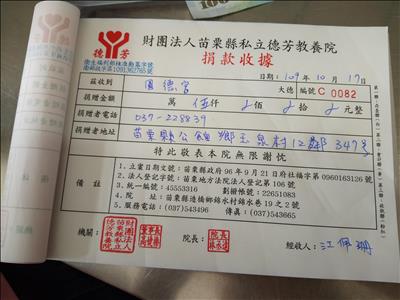 德芳
衛生福利部核准勸募字號
衛部救字第1091362765號
財團法人苗栗縣私立德芳教養院
捐款收據
日期:109年10月17日
茲收到 周德宮 大德 編號 C 0082
捐贈金額 萬 伍仟 佰 拾 元整
捐贈者電話 037-228839
捐贈者地址 苗栗縣公館鄉玉泉村12鄰347號
特此敬表本院無限謝忱
備註
1. 立案日期文號:苗栗縣政府96年9月21日府社福字第0960163126號
2. 法人登記字號:苗栗地方法院法人登記第106號
3. 統一編號:45553316 劃撥帳號:22651083
4. 院址:苗栗縣造橋鄉錦水村錦水巷19之2號
5. 服務電話:(037)543496 傳真:(037)543665
機關: 院長: 經收人:江佩珊